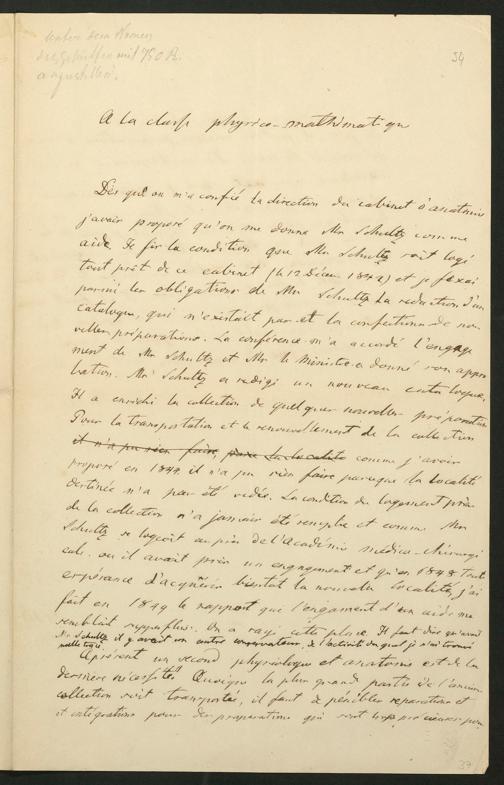 34
A la classe physico-mathématique
Dès qu'on m'a confié la direction du cabinet d'anatomie
j'avais proposé qu'on me donna Mr Schultz comme
aide. Je fis la condition que Mr Schultz soit logé
tout près de ce cabinet (le 12 Décem. 1842) et je fixai
parmi les obligations de Mr Schultz la redaction d'un
catalogue, qui n'existait pas et la confection de nou
velles préparations. La conférence m'a accordé l'engage
ment de Mr Schultz et Mr le Ministre a donné son appro
bation. Mr Schultz a redigé un nouveau catalogue.
Il a enrichi la collection de quelques nouvelles préparations
Pour la transportation et le renouvellement de la collection
il n'a pu rien faire, la localité comme j'avais
proposé en 1842 il n'a pu rien faire parceque la localité
destinée n'a pas été vidée. La condition du logement près
de la collection n'a jamais été remplie et comme Mr
Schultz se logeait auprès de l'Académie médico-chirurgi
cale. où il avait pris un engagement et qu'en 1848 tout
espérance d'acquérir bientot la nouvelle localité, j'ai
fait en 1849 le rapport que l'engagement d'un aide me
semblait superflus. On a rayé cette place. Il faut dire qu'avant
Mr Schultz il y avait un autre conservateur, de l'activité duquel je n'ai trouvé
nulle trace.
Aprésent un second physiologue et anatomiste est de la
dernière nécessité. Quoique la plus grande partie de l'ancienne
collection soit transportée, il faut de pénibles reparations et
et intégrations pour des préparations qui sont trop précieuses pour
37